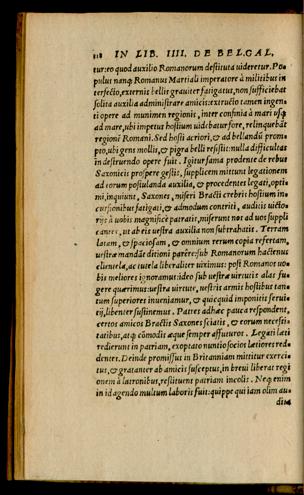 118 IN LIB. IIII. DE BELGAL,
tur: eo quod auxilio Romanorum destituta uideretur. Po-
pulus nanq; Romanus Martiali imperatore à militibus in
terfecto, externis bellis grauiter fatigatus, non sufficiebat
solita auxilia administrare amicis: extructo tamen ingen-
ti opere ad munimen regionis, inter confinia à mari usq;
ad mare, ubi impetus hostium uidebatur fore, relinquebãt
regionẽ Romani. Sed hosti acriori, & ad bellandũ prom-
pto, ubi gens mollis, & pigra belli resistit: nulla difficultas
in destruendo opere fuit. Igitur fama prodente de rebus
Saxonicis prospere gestis, supplicem mittunt legationem
ad eorum postulanda auxilia, & procedentes legati, opti-
mi, inquiunt, Saxones, miseri Bracti crebris hostium in-
cursionibus fatigati, & admodum contriti, auditis uicto-
rijs à uobis magnificè patratis, miserunt nos ad uos suppli
cantes, ut ab eis uestra auxilia non subtrahatis. Terram
latam, & spaciosam, & omnium rerum copia refertam,
uestræ mandãt ditioni parêre: sub Romanorum hactenus
clientela, ac tutela liberaliter uiximus: post Romanos uo-
bis meliores ignoramus: ideo sub uestræ uirtutis alas fu-
gere quærimus: uestra uirtute, uestris armis hostibus tan-
tum superiores inueniamur, & quicquid imponitis serui-
tij, libenter sustinemus. Patres ad hæc pauca respondent,
certos amicos Bractis Saxones sciatis, & eorum necessi-
tatibus, atq; cõmodis æque semper affuturos. Legati læti
redierunt in patriam, exoptato nuntio socios lætiores red-
dentes. Deinde promissus in Britanniam mittitur exerci-
tus, & gratanter ab amicis susceptus, in breui liberat regi
onem à latronibus, restituens patriam incolis. Neq; enim
in id agendo multum laboris fuit: quippe qui iam olim au-
dita